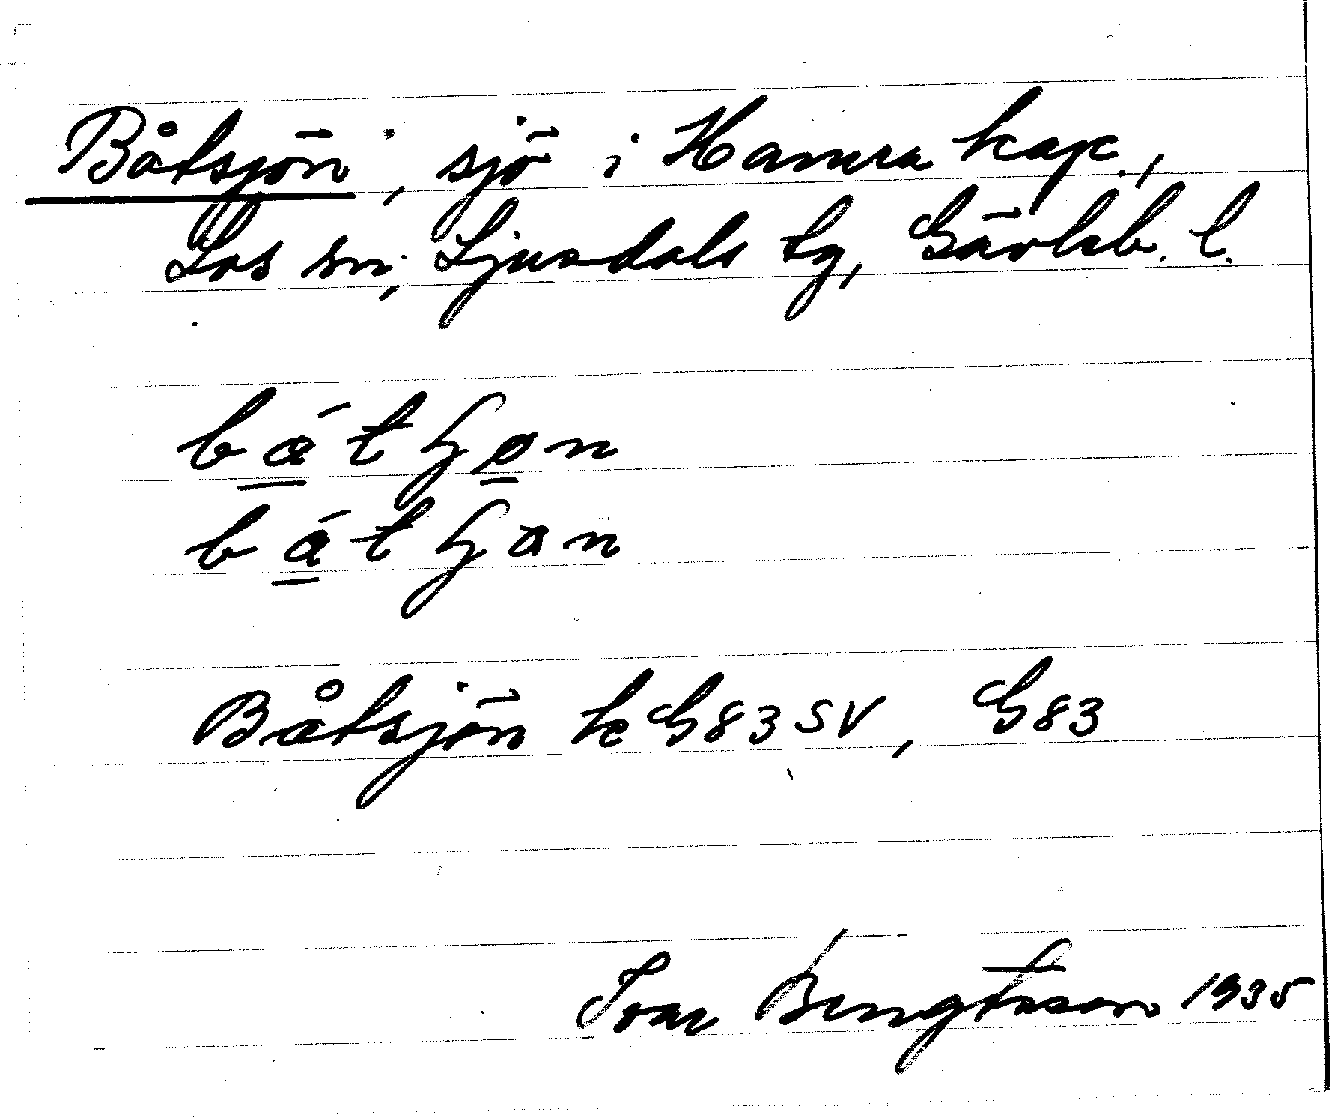 Båtsjön, sjö i Hamra kap.,
Los sn, Ljusdals tg, Gävleb. l.
Båtsjön k G83SV, G83
Ivar Bengtsson 1935